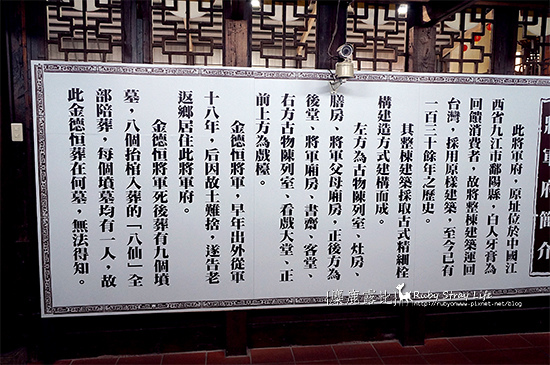 將軍府簡介
此將軍府，原址位於中國江
西省九江市鄱陽縣，白人牙膏為
回饋消費者，故將整棟建築運回
台灣，採用原樣建築，至今已有
一百三十餘年之歷史。
其整棟建築採取古式精細栓
構建造方式建構而成。
左方為古物陳列室、灶房、
膳房、將軍父母廂房、正後方為
後堂、將軍廂房、書齋、客堂、
右方古物陳列室、看戲大堂、正
前上方為戲檯。
金德恒將軍，早年出外從軍
十八年，后因故土難捨，遂告老
返鄉居住此將軍府。
金德恒將軍死後葬有九個墳
墓，八個抬棺人葬的「八仙」全
部陪葬，每個墳墓均有一人，故
此金德恒葬在何墓，無法得知。
麋鹿露比
Ruby Stray Life
http://rubyonwww.pixnet.net/blog